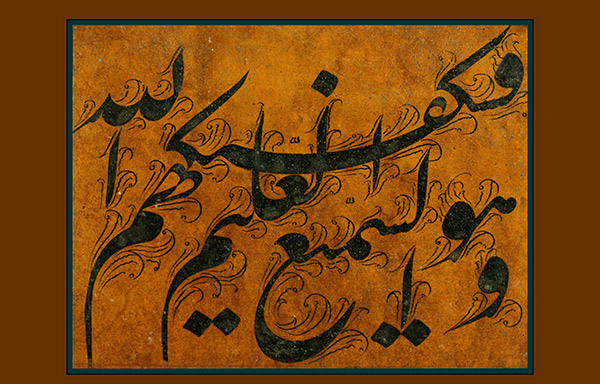 فسیکفیکهم الله
وهو السمیع العلیم